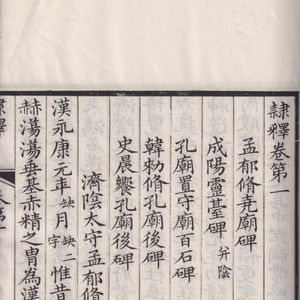 隸釋卷第一
孟郁脩堯廟碑
成陽靈臺碑 并陰
孔廟置守廟百石碑
韓勑脩孔廟後碑
史晨饗孔廟後碑
濟陰太守孟郁脩
漢永康元年缺月缺二字惟昔
赫蕩蕩垂基赤精之胄為漢